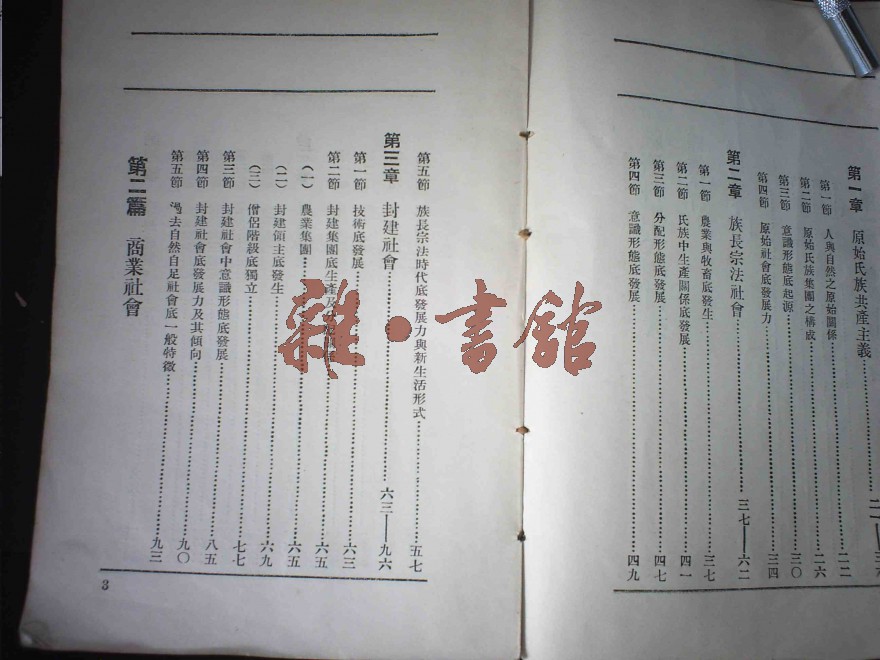 第一章 原始氏族共產主義
第一節 人與自然之原始關係……二二
第二節 原始氏族集團之構成……二六
第三節 意識形態底起源……三〇
第四節 原始社會底發展力……三四
第二章 族長宗法社會……三七——六二
第一節 農業與牧畜底發生……三七
第二節 氏族中生產關係底發展……四一
第三節 分配形態底發展……四七
第四節 意識形態底發展……四九
第五節 族長宗法時代底發展力與新生活形式……五七
第三章 封建社會……六三——九六
第一節 技術底發展……六三
第二節 封建集團底生產及分配關係……六五
(一) 農業集團……六五
(二) 封建領主底發生……六九
(三) 僧侶階級底獨立……七七
第三節 封建社會中意識形態底發展……八五
第四節 封建社會底發展力及其傾向……九〇
第五節 過去自然自足社會底一般特徵……九三
第二篇 商業社會
3
雜·書舘